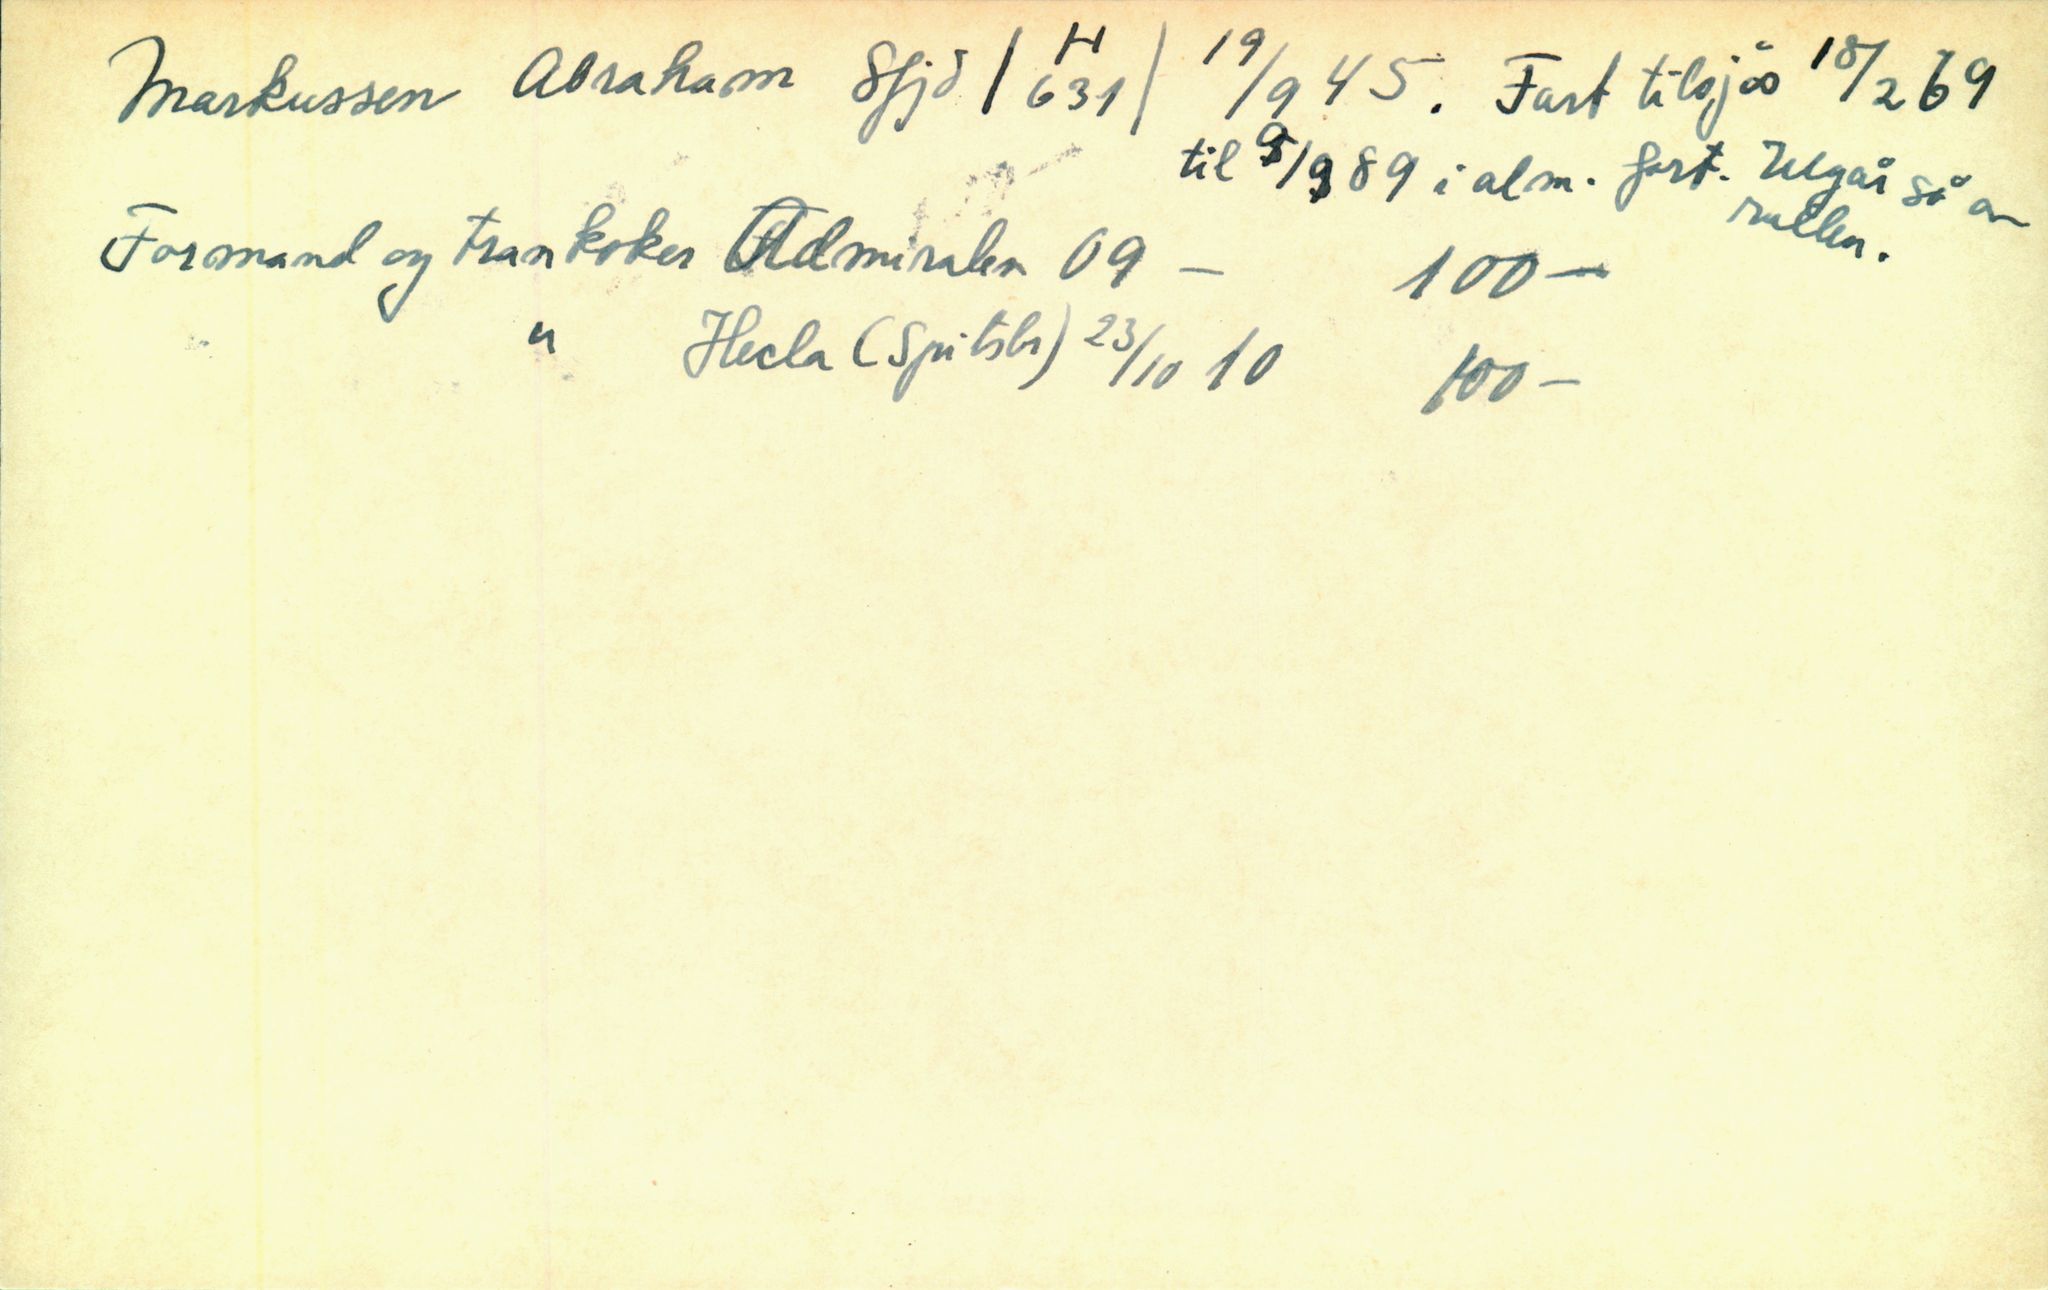 Markussen Abraham Sfjd | H 631 | 19/9 45. Fart tilsjøs 18/2 69
til 9/9 89 i alm. fart. Utgår så av
rullen.
Formand og trankoker Admiralen 09 – 100 –
" " Hecla (Spitsb) 23/10 10 100 –